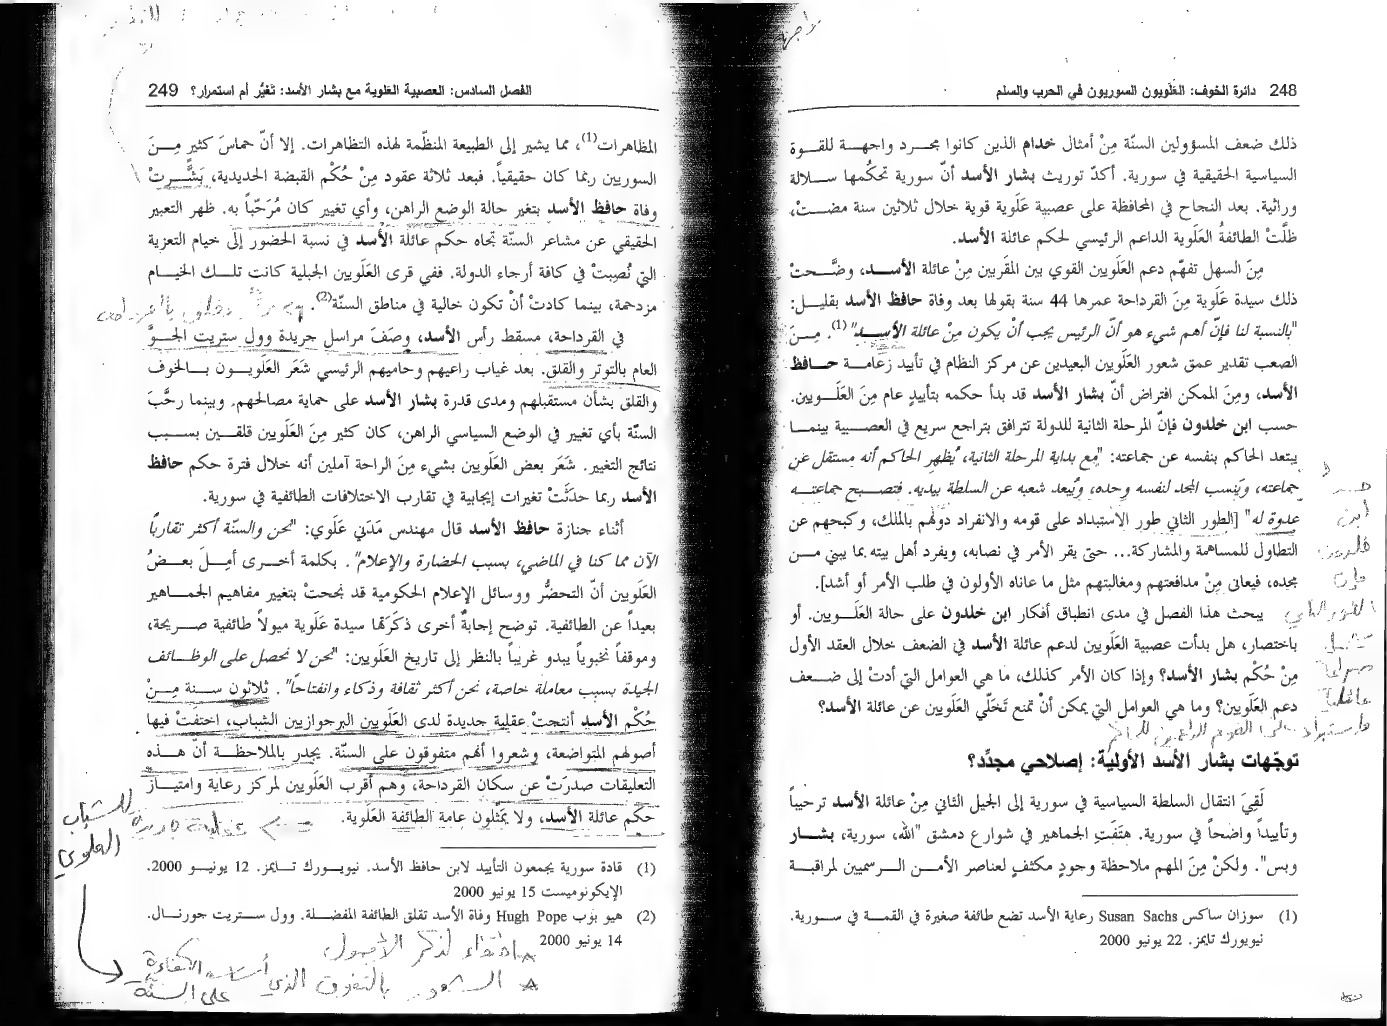 248 دائرة الخوف: العَلَويون السوريون في الحرب والسلم
ذلك ضعف المسؤولين السنّة مِنْ أمثال خدام الذين كانوا بمجرد واجهة للقوة
السياسية الحقيقية في سورية. أكدّ توريث بشار الأسد أنّ سورية تحكُمها سلالة
وراثية. بعد النجاح في المحافظة على عصبية عَلَوية قوية خلال ثلاثين سنة مضتْ،
ظلَّتْ الطائفةُ العَلَوية الداعم الرئيسي لحكم عائلة الأسد.
مِنَ السهل تفهّم دعم العَلَويين القوي بين المقَربين مِنْ عائلة الأسد، وضَّحتْ
ذلك سيدة عَلَوية مِنَ القرداحة عمرها 44 سنة بقولها بعد وفاة حافظ الأسد بقليل:
"بالنسبة لنا فإنّ أهم شيء هو أنّ الرئيس يجب أنْ يكون مِنْ عائلة الأسد"(1). مِنَ
الصعب تقدير عمق شعور العَلَويين البعيدين عن مركز النظام في تأييد زعامة حافظ
الأسد، ومِنَ الممكن افتراض أنّ بشار الأسد قد بدأ حكمه بتأييدٍ عام مِنَ العَلَويين.
حسب ابن خلدون فإنّ المرحلة الثانية للدولة تترافق بتراجع سريع في العصبية بينما
يبتعد الحاكم بنفسه عن جماعته: "مع بداية المرحلة الثانية، يُظهر الحاكم أنه مستقل عن
جماعته، ويَنسب المجد لنفسه وحده، ويُبعد شعبه عن السلطة بيديه. فتصبح جماعته
عدوة له" [الطور الثاني طور الاستبداد على قومه والانفراد دونهم بالملك، وكبحهم عن
التطاول للمساهمة والمشاركة... حتى يقر الأمر في نصابه، ويفرد أهل بيته بما يبني من
مجده، فيعانى مِنْ مدافعتهم ومغالبتهم مثل ما عاناه الأولون في طلب الأمر أو أشد].
يبحث هذا الفصل في مدى انطباق أفكار ابن خلدون على حالة العَلَويين. أو
باختصار، هل بدأت عصبية العَلَويين لدعم عائلة الأسد في الضعف خلال العقد الأول
مِنْ حُكْم بشار الأسد؟ وإذا كان الأمر كذلك، ما هي العوامل التي أدتْ إلى ضعف
دعم العَلَويين؟ وما هي العوامل التي يمكن أنْ تمنع تَخَلّي العَلَويين عن عائلة الأسد؟
توجّهات بشار الأسد الأولية: إصلاحي مجدِّد؟
لَقِيَ انتقال السلطة السياسية في سورية إلى الجيل الثاني مِنْ عائلة الأسد ترحيباً
وتأييداً واضحاً في سورية. هتَفَتِ الجماهير في شوارع دمشق "الله، سورية، بشار
وبس". ولكنْ مِنَ المهم ملاحظة وجودٍ مكثفٍ لعناصر الأمن الرسميين لمراقبة
(1) سوزان ساكس Susan Sachs رعاية الأسد تضع طائفة صغيرة في القمة في سورية.
نيويورك تايمز. 22 يونيو 2000
الفصل السادس: العصبية العَلوية مع بشار الأسد: تغيُّر أم استمرار؟ 249
المظاهرات(1)، مما يشير إلى الطبيعة المنظّمة لهذه التظاهرات. إلا أنّ حماسَ كثيرٍ مِنَ
السوريين ربما كان حقيقياً. فبعد ثلاثة عقود مِنْ حُكْم القبضة الحديدية، بَشَّرتْ
وفاة حافظ الأسد بتغير حالة الوضع الراهن، وأي تغيير كان مُرَحّباً به. ظهر التعبير
الحقيقي عن مشاعر السنّة تجاه حكم عائلة الأسد في نسبة الحضور إلى خيام التعزية
التي نُصِبتْ في كافة أرجاء الدولة. ففي قرى العَلَويين الجبلية كانت تلك الخيام
مزدحمة، بينما كادتْ أنْ تكون خالية في مناطق السنّة(2).
في القرداحة، مسقط رأس الأسد، وصَفَ مراسل جريدة وول ستريت الجوَّ
العام بالتوتر والقلق. بعد غياب راعيهم وحاميهم الرئيسي شَعَر العَلَويون بالخوف
والقلق بشأن مستقبلهم ومدى قدرة بشار الأسد على حماية مصالحهم. وبينما رحَّبَ
السنّة بأي تغيير في الوضع السياسي الراهن، كان كثير مِنَ العَلَويين قلقين بسبب
نتائج التغيير. شَعَر بعض العَلَويين بشيء مِنَ الراحة آملين أنه خلال فترة حكم حافظ
الأسد ربما حدَثَتْ تغيرات إيجابية في تقارب الاختلافات الطائفية في سورية.
أثناء جنازة حافظ الأسد قال مهندس مَدَني عَلَوي: "نحن والسنّة أكثر تقارباً
الآن مما كنا في الماضي، بسبب الحضارة والإعلام". بكلمة أخرى أمِلَ بعضُ
العَلَويين أنّ التحضُّر ووسائل الإعلام الحكومية قد نجحتْ بتغيير مفاهيم الجماهير
بعيداً عن الطائفية. توضح إجابةٌ أخرى ذكَرَتْها سيدة عَلَوية ميولاً طائفية صريحة،
وموقفاً نخبوياً يبدو غريباً بالنظر إلى تاريخ العَلَويين: "نحن لا نحصل على الوظائف
الجيدة بسبب معاملة خاصة، نحن أكثر ثقافة وذكاء وانفتاحاً". ثلاثون سنة مِنْ
حُكْم الأسد أنتجتْ عقلية جديدة لدى العَلَويين البرجوازيين الشباب، اختفتْ فيها
أصولهم المتواضعة، وشعروا أنهم متفوقون على السنّة. يجدر بالملاحظة أنّ هذه
التعليقات صدرَتْ عن سكان القرداحة، وهم أقرب العَلَويين لمركز رعاية وامتياز
حكم عائلة الأسد، ولا يمثّلون عامة الطائفة العَلَوية.
عقلية جديدة للشباب
العلوي
(1) قادة سورية يجمعون التأييد لابن حافظ الأسد. نيويورك تايمز. 12 يونيو 2000.
الإيكونوميست 15 يونيو 2000
(2) هيو بوْب Hugh Pope وفاة الأسد تقلق الطائفة المفضلة. وول ستريت جورنال.
14 يونيو 2000
اختفاء لذكر الأصول
الشعور بالتفوق الذي أساسه الكفاءة
على السنّة